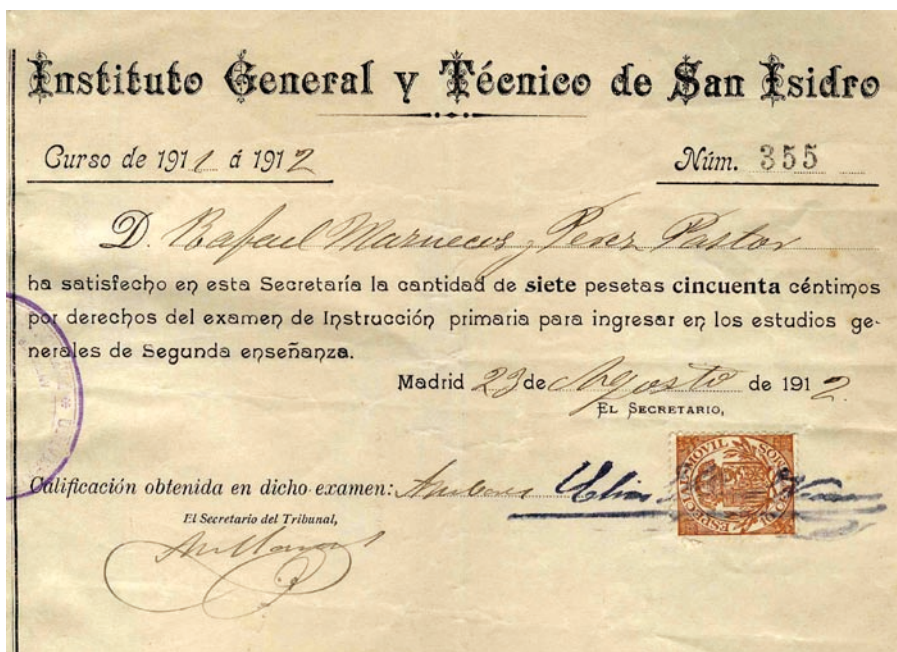 Instituto General y Técnico de San Isidro
Curso de 1911 á 1912
Núm. 355
D. Rafael Marruecos y Perez Pastor
ha satisfecho en esta Secretaría la cantidad de siete pesetas cincuenta céntimos
por derechos del examen de Instrucción primaria para ingresar en los estudios ge-
nerales de Segunda enseñanza.
Madrid 23 de Agosto de 1912.
EL SECRETARIO,
ESPECIAL MOVIL
Calificación obtenida en dicho examen:
El Secretario del Tribunal,